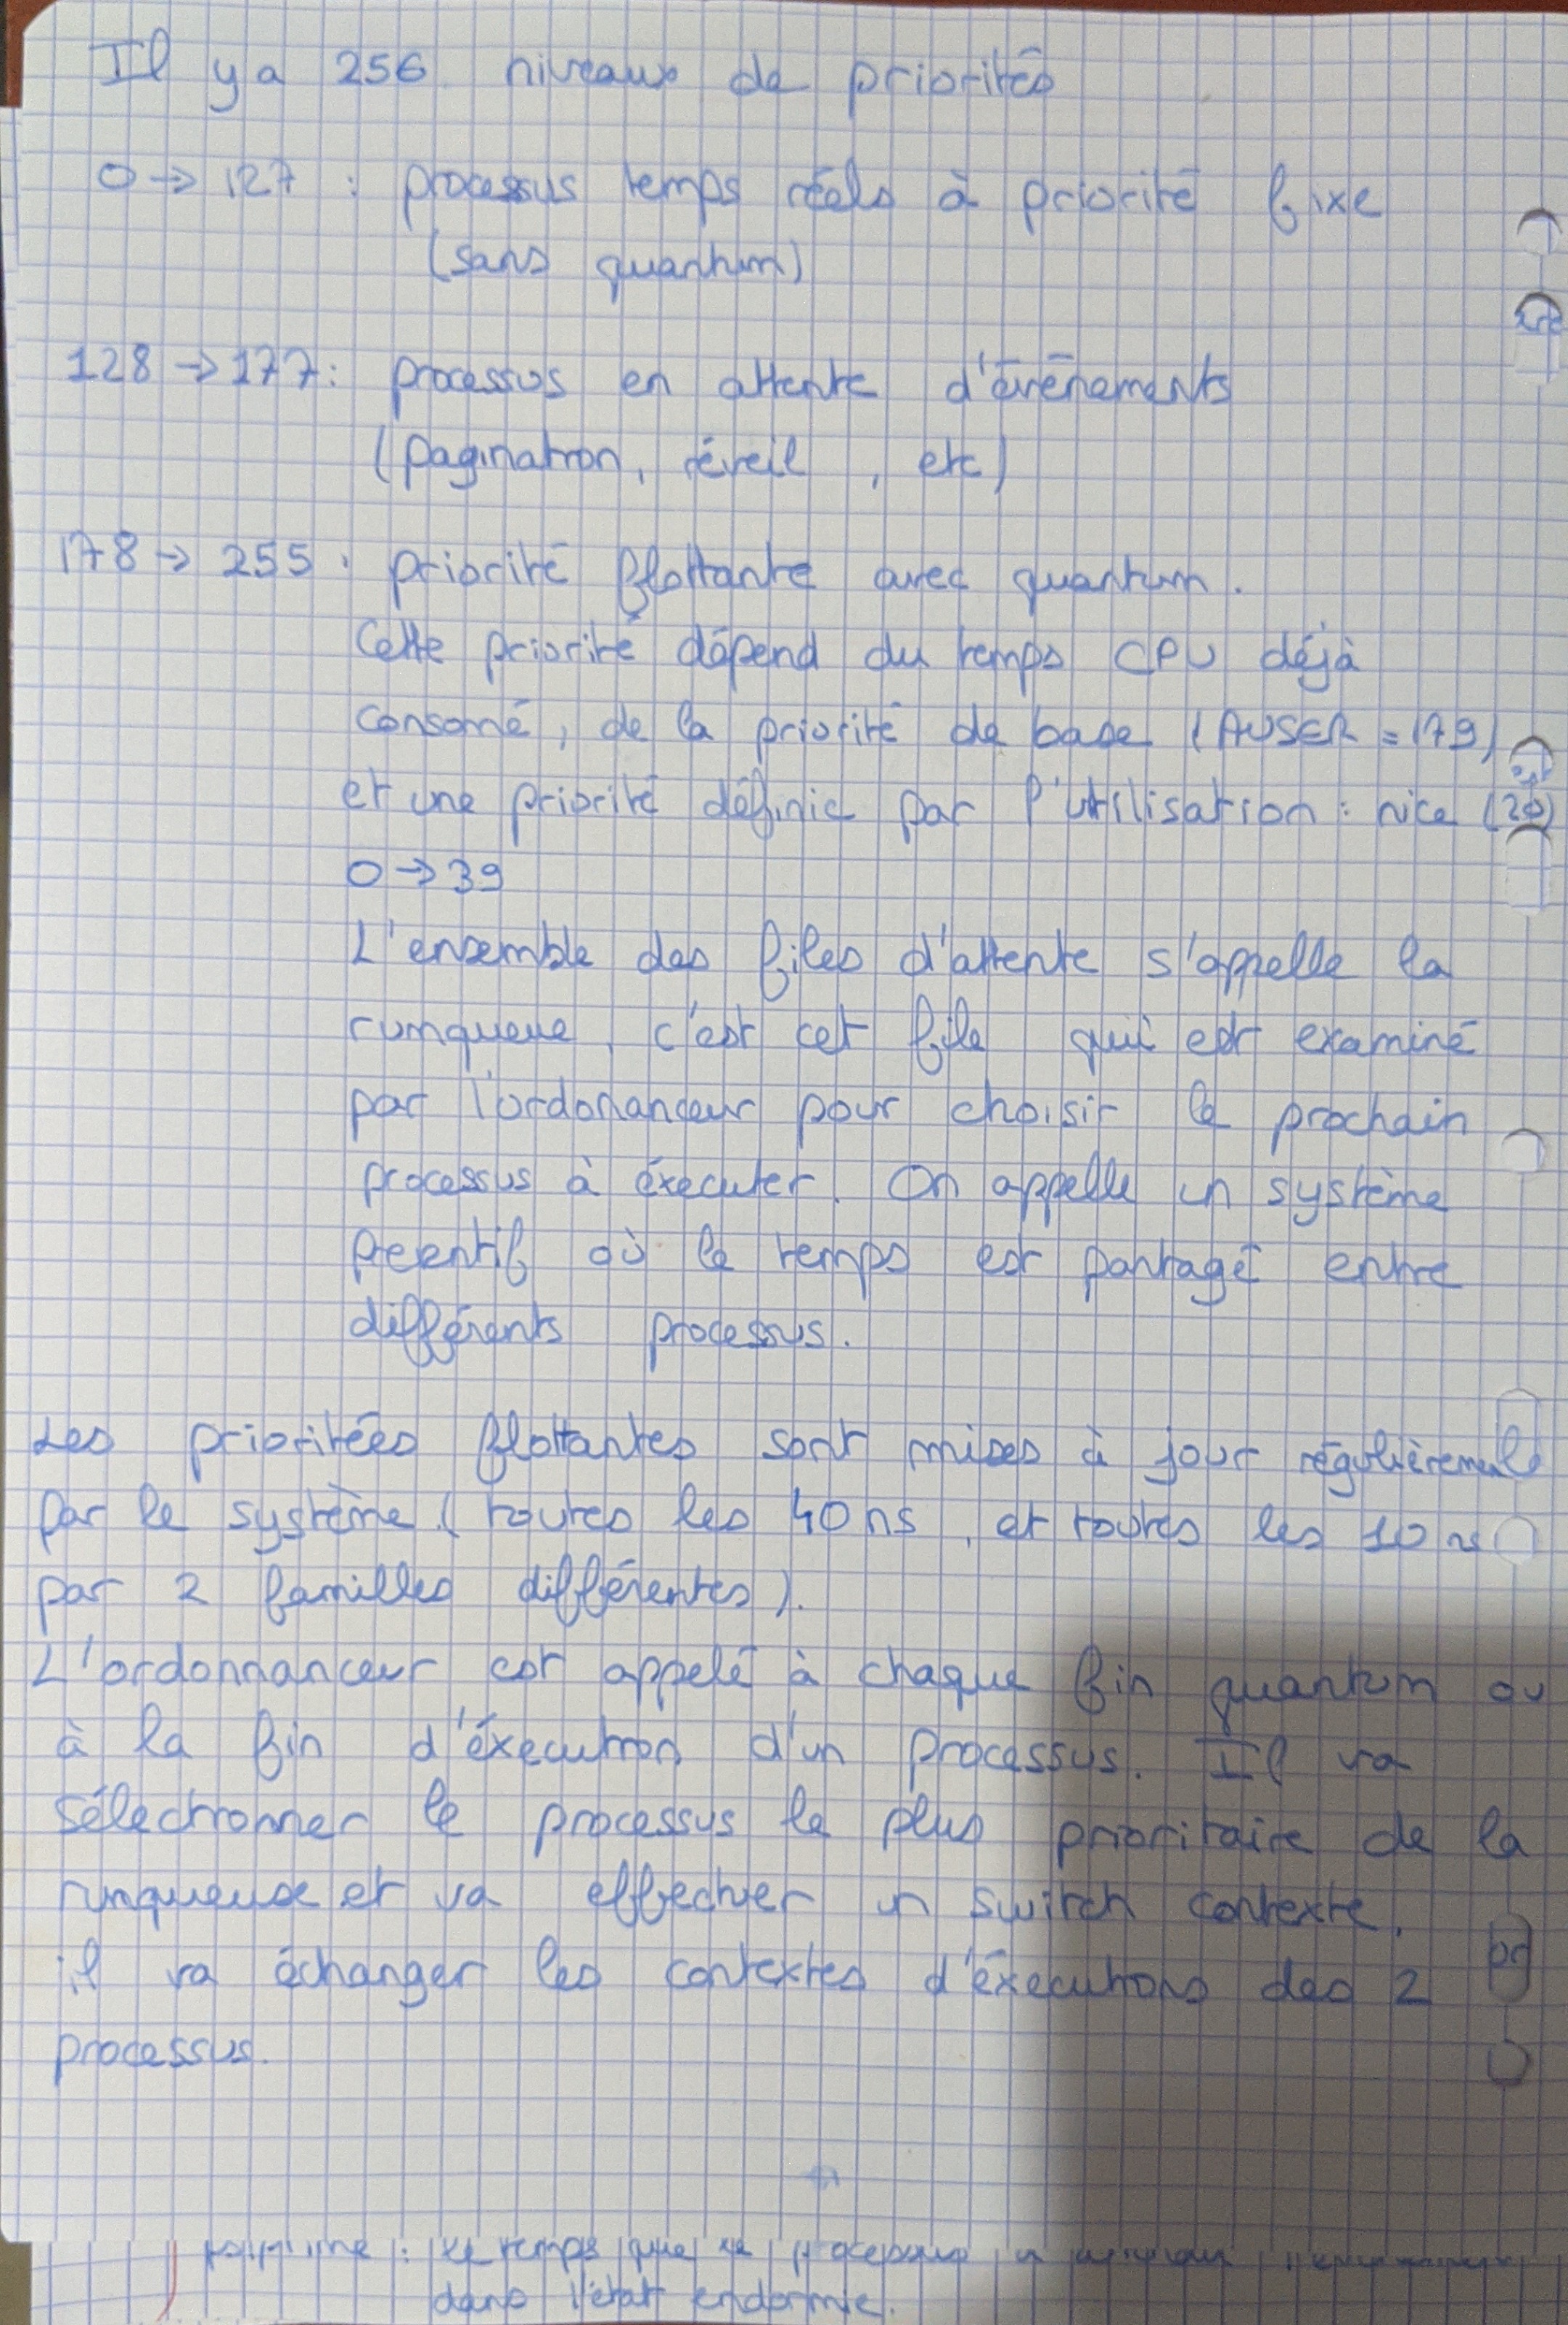 Il y a 256 niveaux de priorités
0 → 127 : processus temps réels à priorité fixe
(sans quantum)
128 → 177 : processus en attente d'événements
(pagination, réveil, etc)
178 → 255 : priorité flottante avec quantum.
Cette priorité dépend du temps CPU déjà
consomé, de la priorité de base (AUSER = 179)
et une priorité définie par l'utilisation : nice (20)
0 → 39
L'ensemble des files d'attente s'appelle la
runqueue, c'est cet file qui est examiné
par l'ordonanceur pour choisir le prochain
processus à éxecuter. On appelle un système
où le temps est partagé entre
différents processus.
Les prioritées flottantes sont mises à jour régulièrement
par le système (toutes les 40 ns, et toutes les 10 ns
par 2 familles différentes).
L'ordonnanceur est appelé à chaque fin quantum ou
à la fin d'éxecution d'un processus. Il va
sélectionner le processus le plus prioritaire de la
runqueue et va effectuer un switch contexte.
il va échanger les contextes d'éxecutions des 2
processus.
: le temps que le processus
dans l'état endormie.